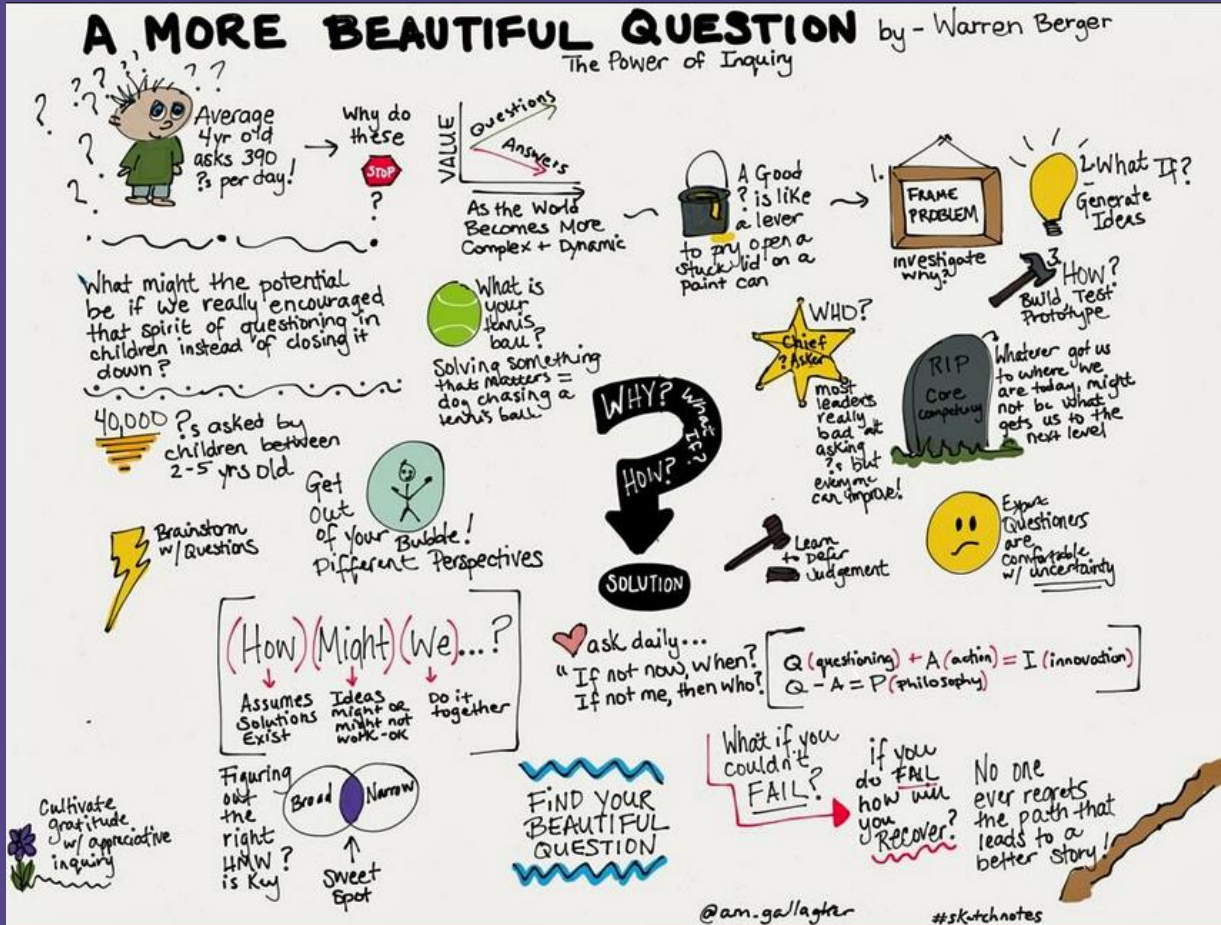 A MORE BEAUTIFUL QUESTION by - Warren Berger
The Power of Inquiry
Average
4yr old
asks 390
?s per day!
Why do
these
STOP
?
VALUE
Questions
Answers
As the World
Becomes More
Complex + Dynamic
A Good
? is like
a lever
to pry open a
stuck lid on a
paint can
1.
FRAME
PROBLEM
investigate
why?
2. What If?
Generate
Ideas
3.
HOW?
Build Test
Prototype
What might the potential
be if we really encouraged
that spirit of questioning in
children instead of closing it
down?
What is
your
tennis
ball?
Solving something
that matters =
dog chasing a
tennis ball
WHO?
Chief
? Asker
most
leaders
really
bad at
asking
?s but
everyone
can improve!
RIP
Core
competency
Whatever got us
to where we
are today, might
not be what
gets us to the
next level
40,000 ?s asked by
children between
2-5 yrs old
WHY?
What
If?
HOW?
SOLUTION
Get
Out
of your Bubble!
Different Perspectives
Brainstorm
w/ Questions
Learn
to Defer
Judgement
Expert
Questioners
are
comfortable
w/ uncertainty
(How) (Might) (We)...?
Assumes
Solutions
Exist
Ideas
might or
might not
work-ok
Do it
together
ask daily...
"If not now, when?
If not me, then who?
Q (questioning) + A (action) = I (innovation)
Q - A = P (philosophy)
Figuring
out
the
right
HMW?
is Key
Broad
Narrow
Sweet
Spot
FIND YOUR
BEAUTIFUL
QUESTION
What if you
couldn't
FAIL?
if you
do FAIL
how will
you
Recover?
No one
ever regrets
the path that
leads to a
better story!
Cultivate
gratitude
w/ appreciative
inquiry
@am.gallagher
#sketchnotes